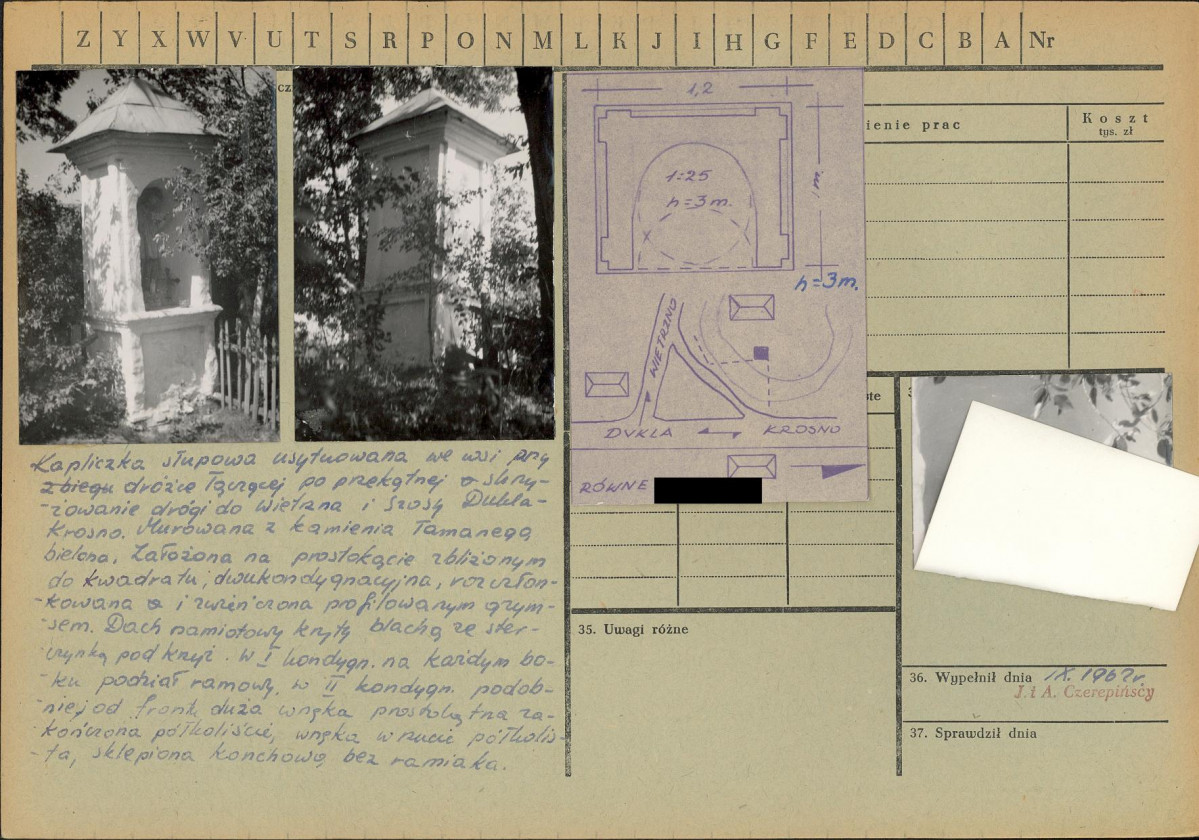 Z Y X W V U T S R P O N M L K J I H G F E D C B A Nr
cz
ienie prac
Koszt
tys. zł
1,2
1:25
h=3m.
1m.
h=3m.
WIETRZNO
DUKLA KROSNO
RÓWNE
Kapliczka słupowa usytuowana we wsi przy
zbiegu dróżce łączącej po przekątnej skrzy-
-żowanie drogi do Wietrzna i szosy Dukla-
Krosno. Murowana z kamienia łamanego
bielona. Założona na prostokącie zbliżonym
do kwadratu, dwukondygnacyjna, rozczłon-
-kowana i zwieńczona profilowanym gzym-
-sem. Dach namiotowy kryty blachą ze ster-
-czynką pod krzyż. W I kondygn. na każdym bo-
-ku podział ramowy, w II kondygn. podob-
-niej od front. duża wnęka prostokątna za-
-kończona półkoliście, wnęka w rzucie półkolis-
-ta, sklepiona konchowo, bez ramiaka.
35. Uwagi różne
36. Wypełnił dnia IX. 1967r.
J. i A. Czerepińscy
37. Sprawdził dnia